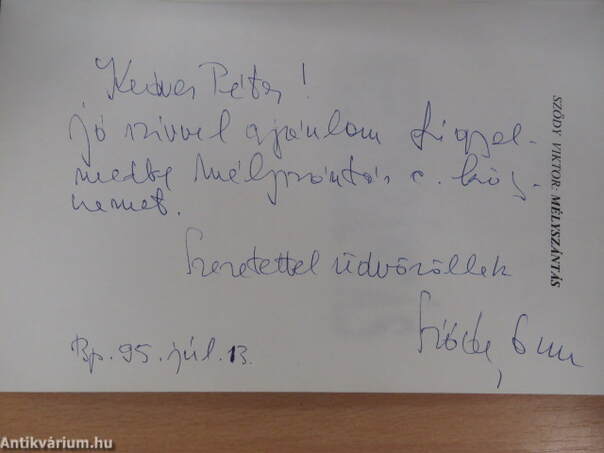 Kedves Péter!
jó szivvel ajánlom figyel-
medbe Mélyszántás c. köny-
vemet.
Szeretettel üdvözöllek
Bp. 95. júl. 13.
SZŐDY VIKTOR: MÉLYSZÁNTÁS
Antikvárium.hu